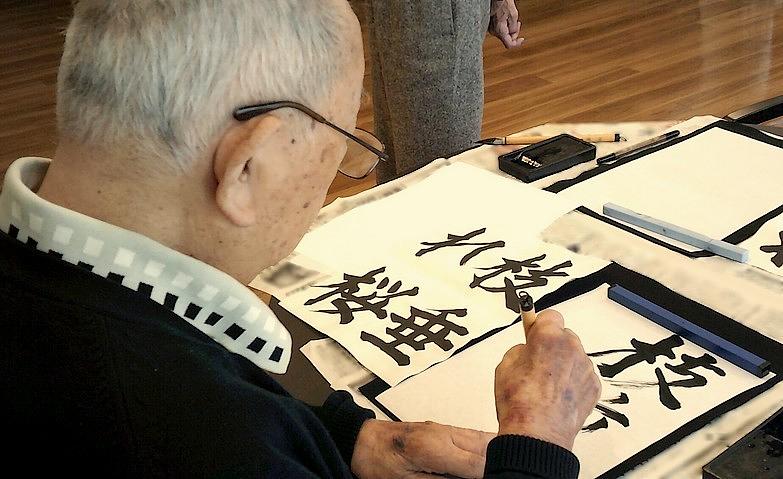 枝垂
れ桜
枝